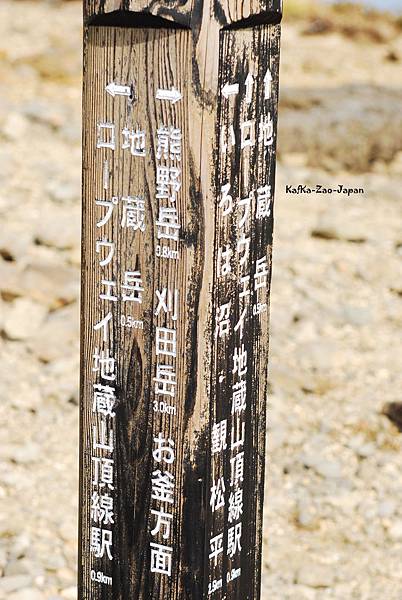 →
熊野岳 0.8km 刈田岳 3.0km お釜方面
←
地蔵岳 0.5km
ロープウェイ地蔵山頂線駅 0.9km
↑
地蔵岳 0.5km
↑
ロープウェイ地蔵山頂線駅 0.9km
←
いろは沼・観松平
KafKa-Zao-Japan